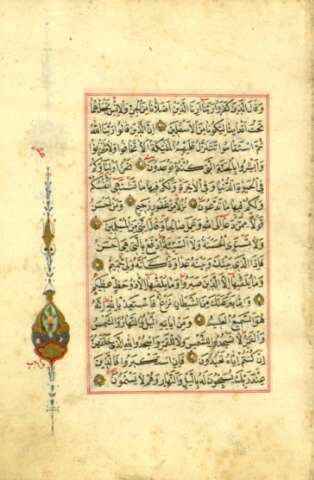 وَقَالَ الَّذِينَ كَفَرُوا رَبَّنَا أَرِنَا الَّذَيْنِ أَضَلَّانَا مِنَ الْجِنِّ وَالْإِنْسِ نَجْعَلْهُمَا
تَحْتَ أَقْدَامِنَا لِيَكُونَا مِنَ الْأَسْفَلِينَ إِنَّ الَّذِينَ قَالُوا رَبُّنَا اللَّهُ
ثُمَّ اسْتَقَامُوا تَتَنَزَّلُ عَلَيْهِمُ الْمَلَائِكَةُ أَلَّا تَخَافُوا وَلَا تَحْزَنُوا
وَأَبْشِرُوا بِالْجَنَّةِ الَّتِي كُنْتُمْ تُوعَدُونَ نَحْنُ أَوْلِيَاؤُكُمْ
فِي الْحَيَاةِ الدُّنْيَا وَفِي الْآخِرَةِ وَلَكُمْ فِيهَا مَا تَشْتَهِي أَنْفُسُكُمْ
وَلَكُمْ فِيهَا مَا تَدَّعُونَ نُزُلًا مِنْ غَفُورٍ رَحِيمٍ وَمَنْ أَحْسَنُ
قَوْلًا مِمَّنْ دَعَا إِلَى اللَّهِ وَعَمِلَ صَالِحًا وَقَالَ إِنَّنِي مِنَ الْمُسْلِمِينَ
وَلَا تَسْتَوِي الْحَسَنَةُ وَلَا السَّيِّئَةُ ادْفَعْ بِالَّتِي هِيَ أَحْسَنُ
فَإِذَا الَّذِي بَيْنَكَ وَبَيْنَهُ عَدَاوَةٌ كَأَنَّهُ وَلِيٌّ حَمِيمٌ
وَمَا يُلَقَّاهَا إِلَّا الَّذِينَ صَبَرُوا وَمَا يُلَقَّاهَا إِلَّا ذُو حَظٍّ عَظِيمٍ
وَإِمَّا يَنْزَغَنَّكَ مِنَ الشَّيْطَانِ نَزْغٌ فَاسْتَعِذْ بِاللَّهِ إِنَّهُ
هُوَ السَّمِيعُ الْعَلِيمُ وَمِنْ آيَاتِهِ اللَّيْلُ وَالنَّهَارُ وَالشَّمْسُ
وَالْقَمَرُ لَا تَسْجُدُوا لِلشَّمْسِ وَلَا لِلْقَمَرِ وَاسْجُدُوا لِلَّهِ الَّذِي خَلَقَهُنَّ
إِنْ كُنْتُمْ إِيَّاهُ تَعْبُدُونَ فَإِنِ اسْتَكْبَرُوا فَالَّذِينَ
عِنْدَ رَبِّكَ يُسَبِّحُونَ لَهُ بِاللَّيْلِ وَالنَّهَارِ وَهُمْ لَا يَسْأَمُونَ